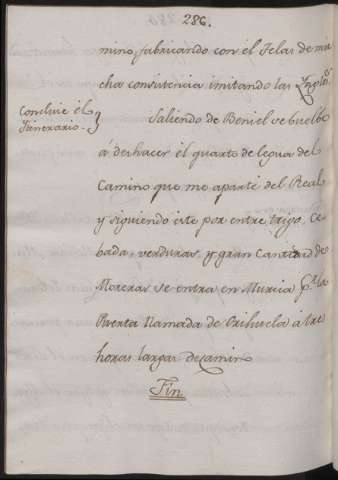 286.
mino, fabricando con él Telas de mu
cha consistencia imitando las Ynglesˢ
Concluie él
Itinerario.
Saliendo de Beniel se buelbe
á deshacer él quarto de legua del
Camino que me aparté del Real
y siguiendo éste por entre trigo, Ce
bada, verduras, y gran Cantidad de
Moreras se entra en Murcia pʳ la
Puerta llamada de Orihuela á tres
horas largas de camino
Fin